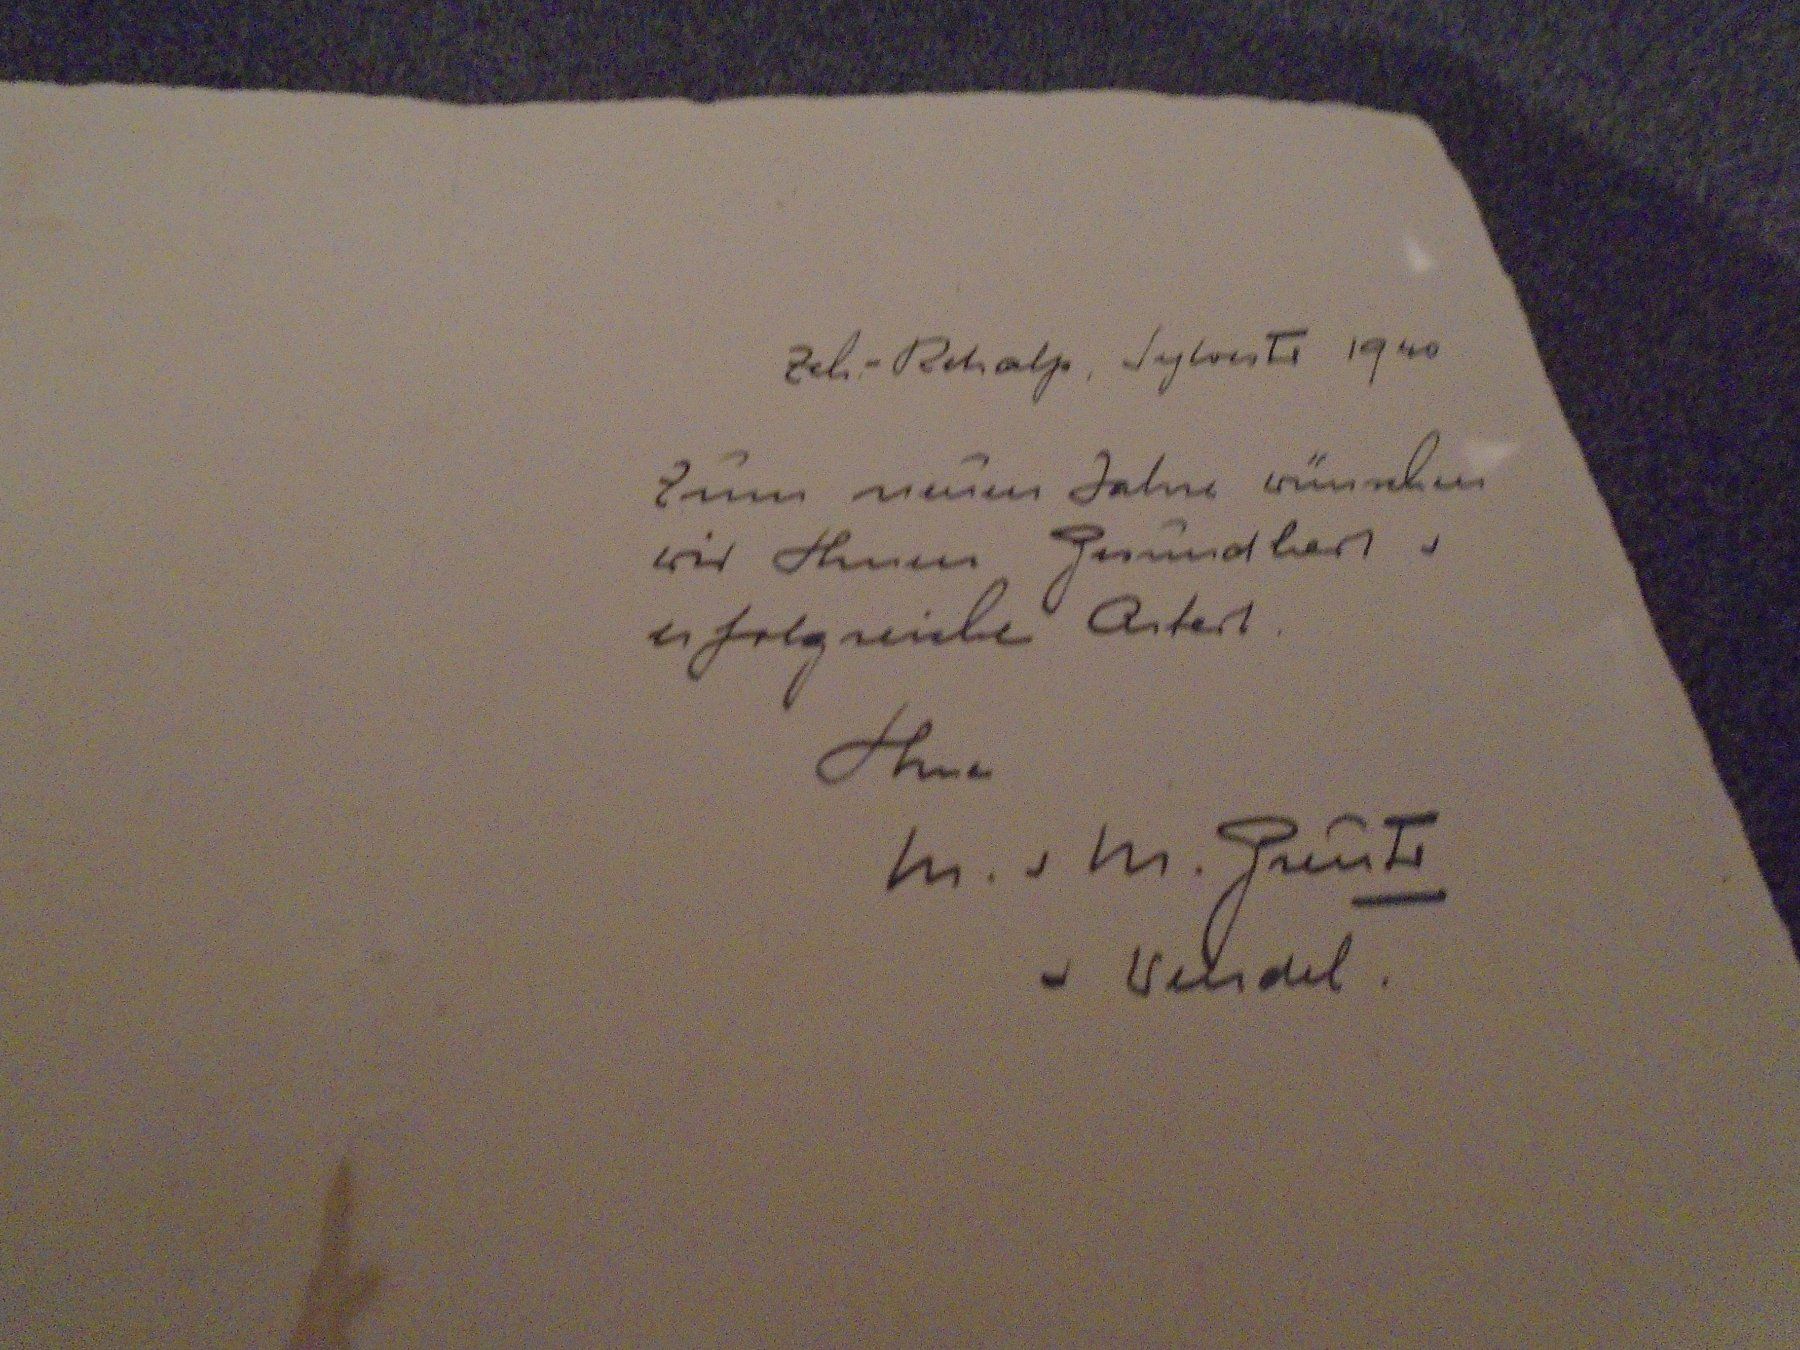 Zch.-Rehalp, Sylvester 1940
Zum neuen Jahre wünschen
wir Ihnen Gesundheit u
erfolgreiche Arbeit.
Ihre
M. u M. Greuter
u Wendel.